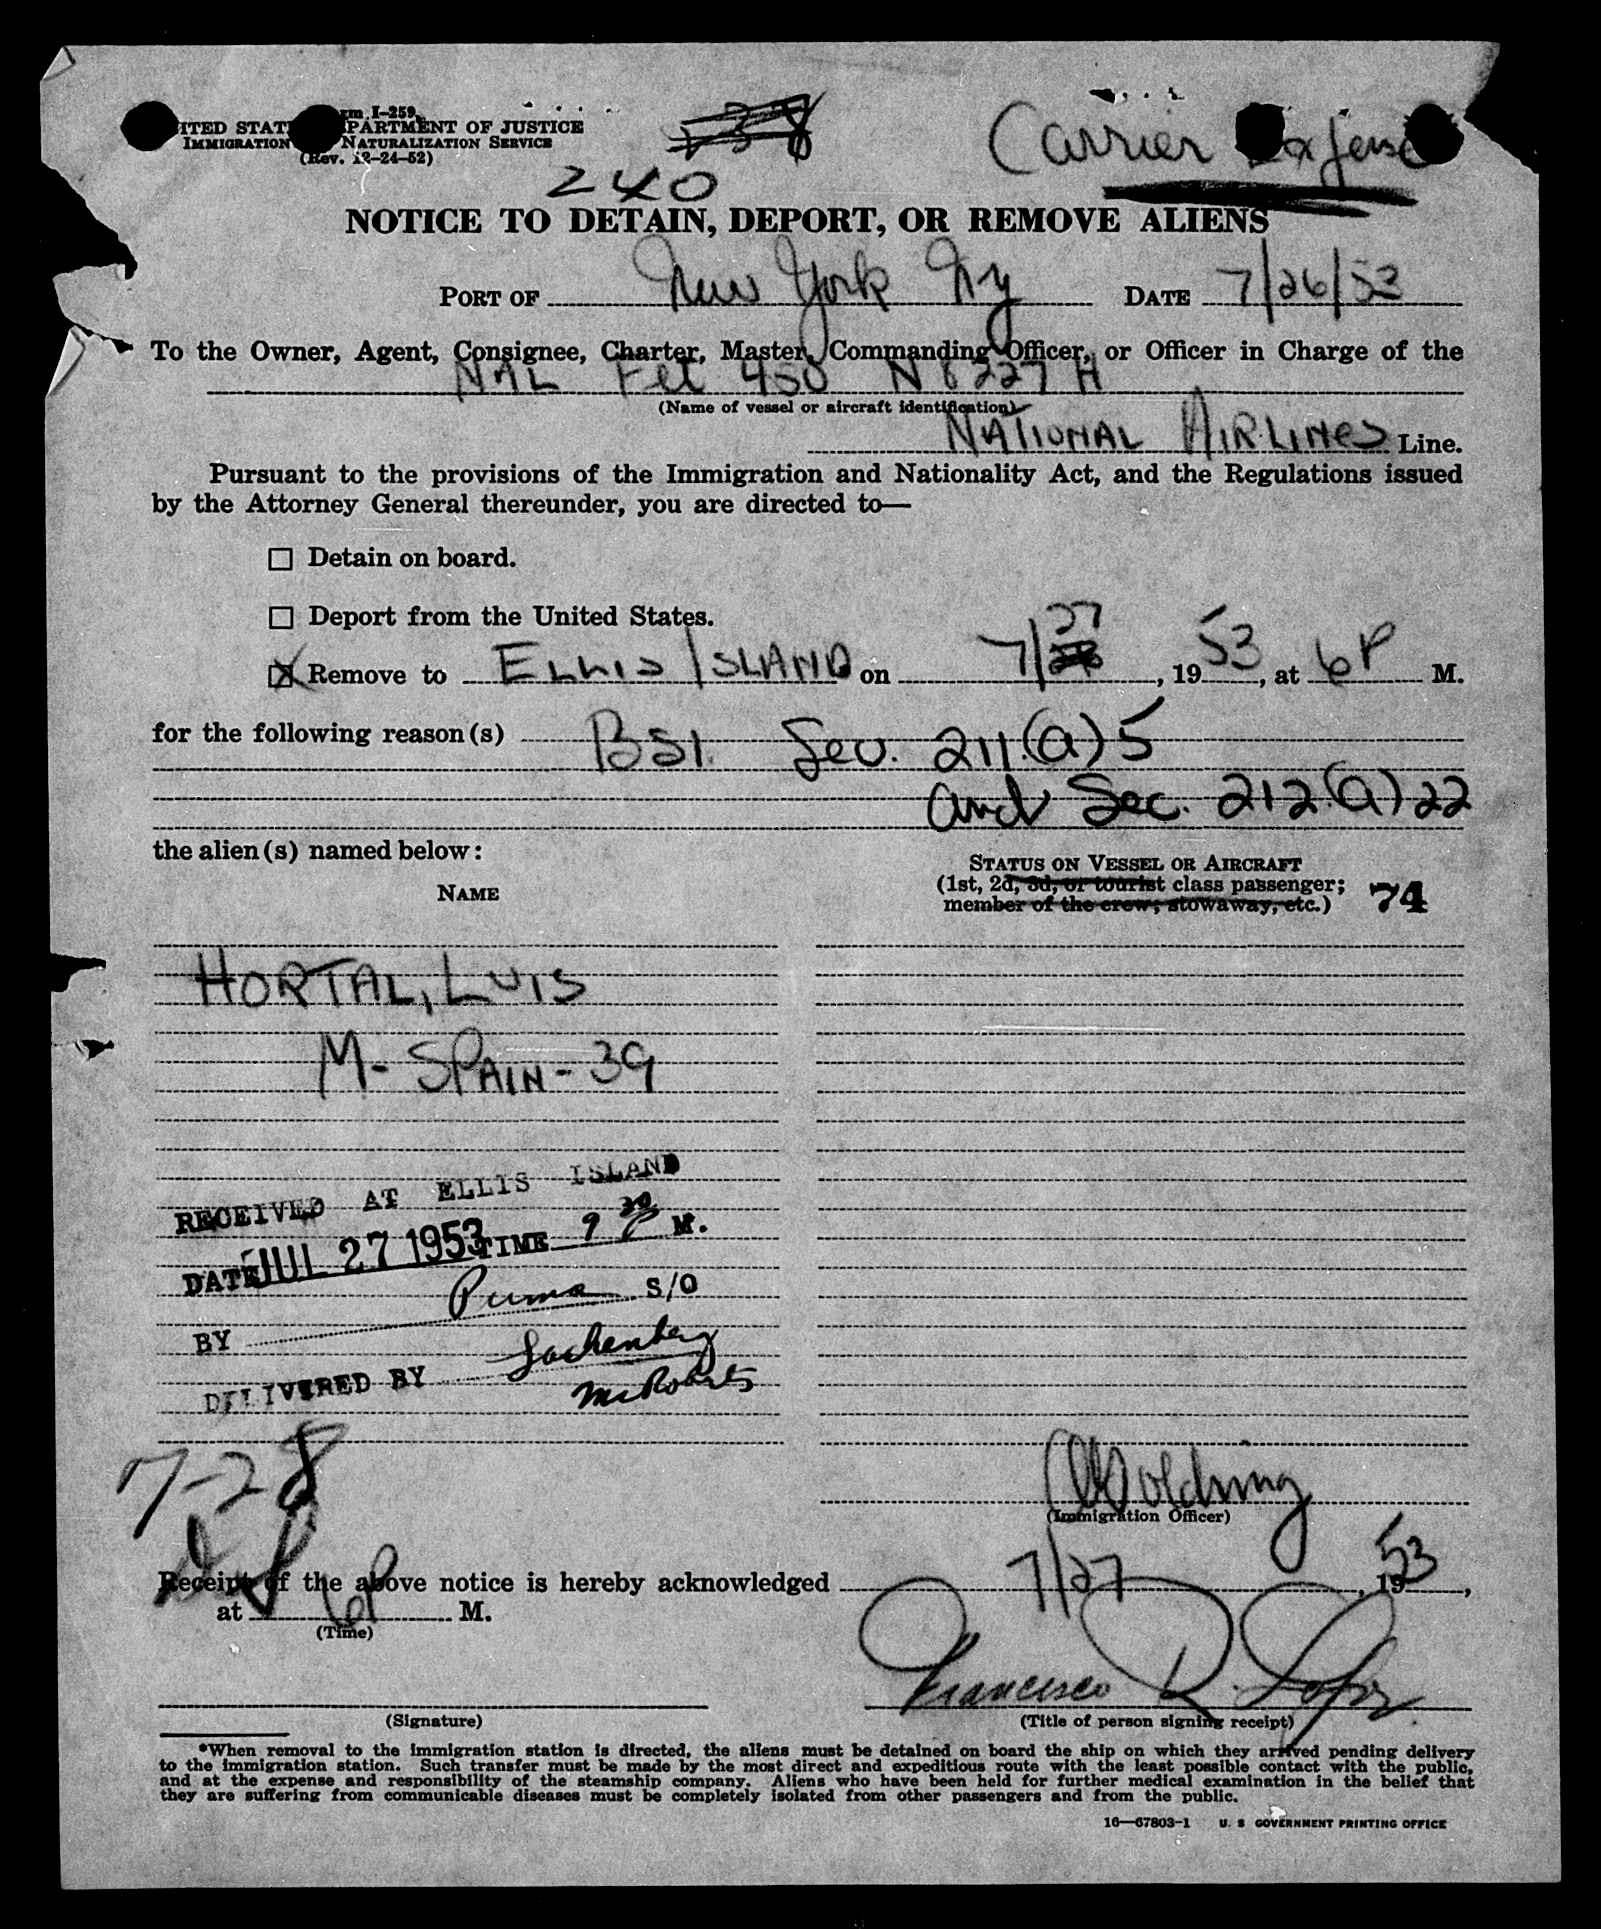 Form I-259
UNITED STATES DEPARTMENT OF JUSTICE
IMMIGRATION NATURALIZATION SERVICE
(Rev. 12-24-52)
Carrier Expense
240
NOTICE TO DETAIN, DEPORT, OR REMOVE ALIENS
PORT OF New York Ny DATE 7/26/53
To the Owner, Agent, Consignee, Charter, Master, Commanding Officer, or Officer in Charge of the
NAL Flt 450 N8227H
(Name of vessel or aircraft identification)
NATIONAL AIRLINES Line.
Pursuant to the provisions of the Immigration and Nationality Act, and the Regulations issued
by the Attorney General thereunder, you are directed to—
☐ Detain on board.
☐ Deport from the United States.
☒ Remove to ELLIS ISLAND on 7/27, 1953, at 6P M.
for the following reason(s) BSI. Sec. 211.(a)5
and Sec. 212(a)22
the alien(s) named below:
NAME
STATUS ON VESSEL OR AIRCRAFT
(1st, 2d, 3d, or tourist class passenger;
member of the crew; stowaway, etc.) 74
HORTAL, LUIS
M- SPAIN- 39
RECEIVED AT ELLIS ISLAND
DATE JUL 27 1953 TIME 9 30 P M.
BY Puma S/O
DELIVERED BY
McRoberts
7-28
(Immigration Officer)
Receipt of the above notice is hereby acknowledged 7/27, 1953,
at 6P M.
(Time)
Francisco R.
(Signature)
(Title of person signing receipt)
*When removal to the immigration station is directed, the aliens must be detained on board the ship on which they arrived pending delivery
to the immigration station. Such transfer must be made by the most direct and expeditious route with the least possible contact with the public,
and at the expense and responsibility of the steamship company. Aliens who have been held for further medical examination in the belief that
they are suffering from communicable diseases must be completely isolated from other passengers and from the public.
16—67803-1 U. S GOVERNMENT PRINTING OFFICE